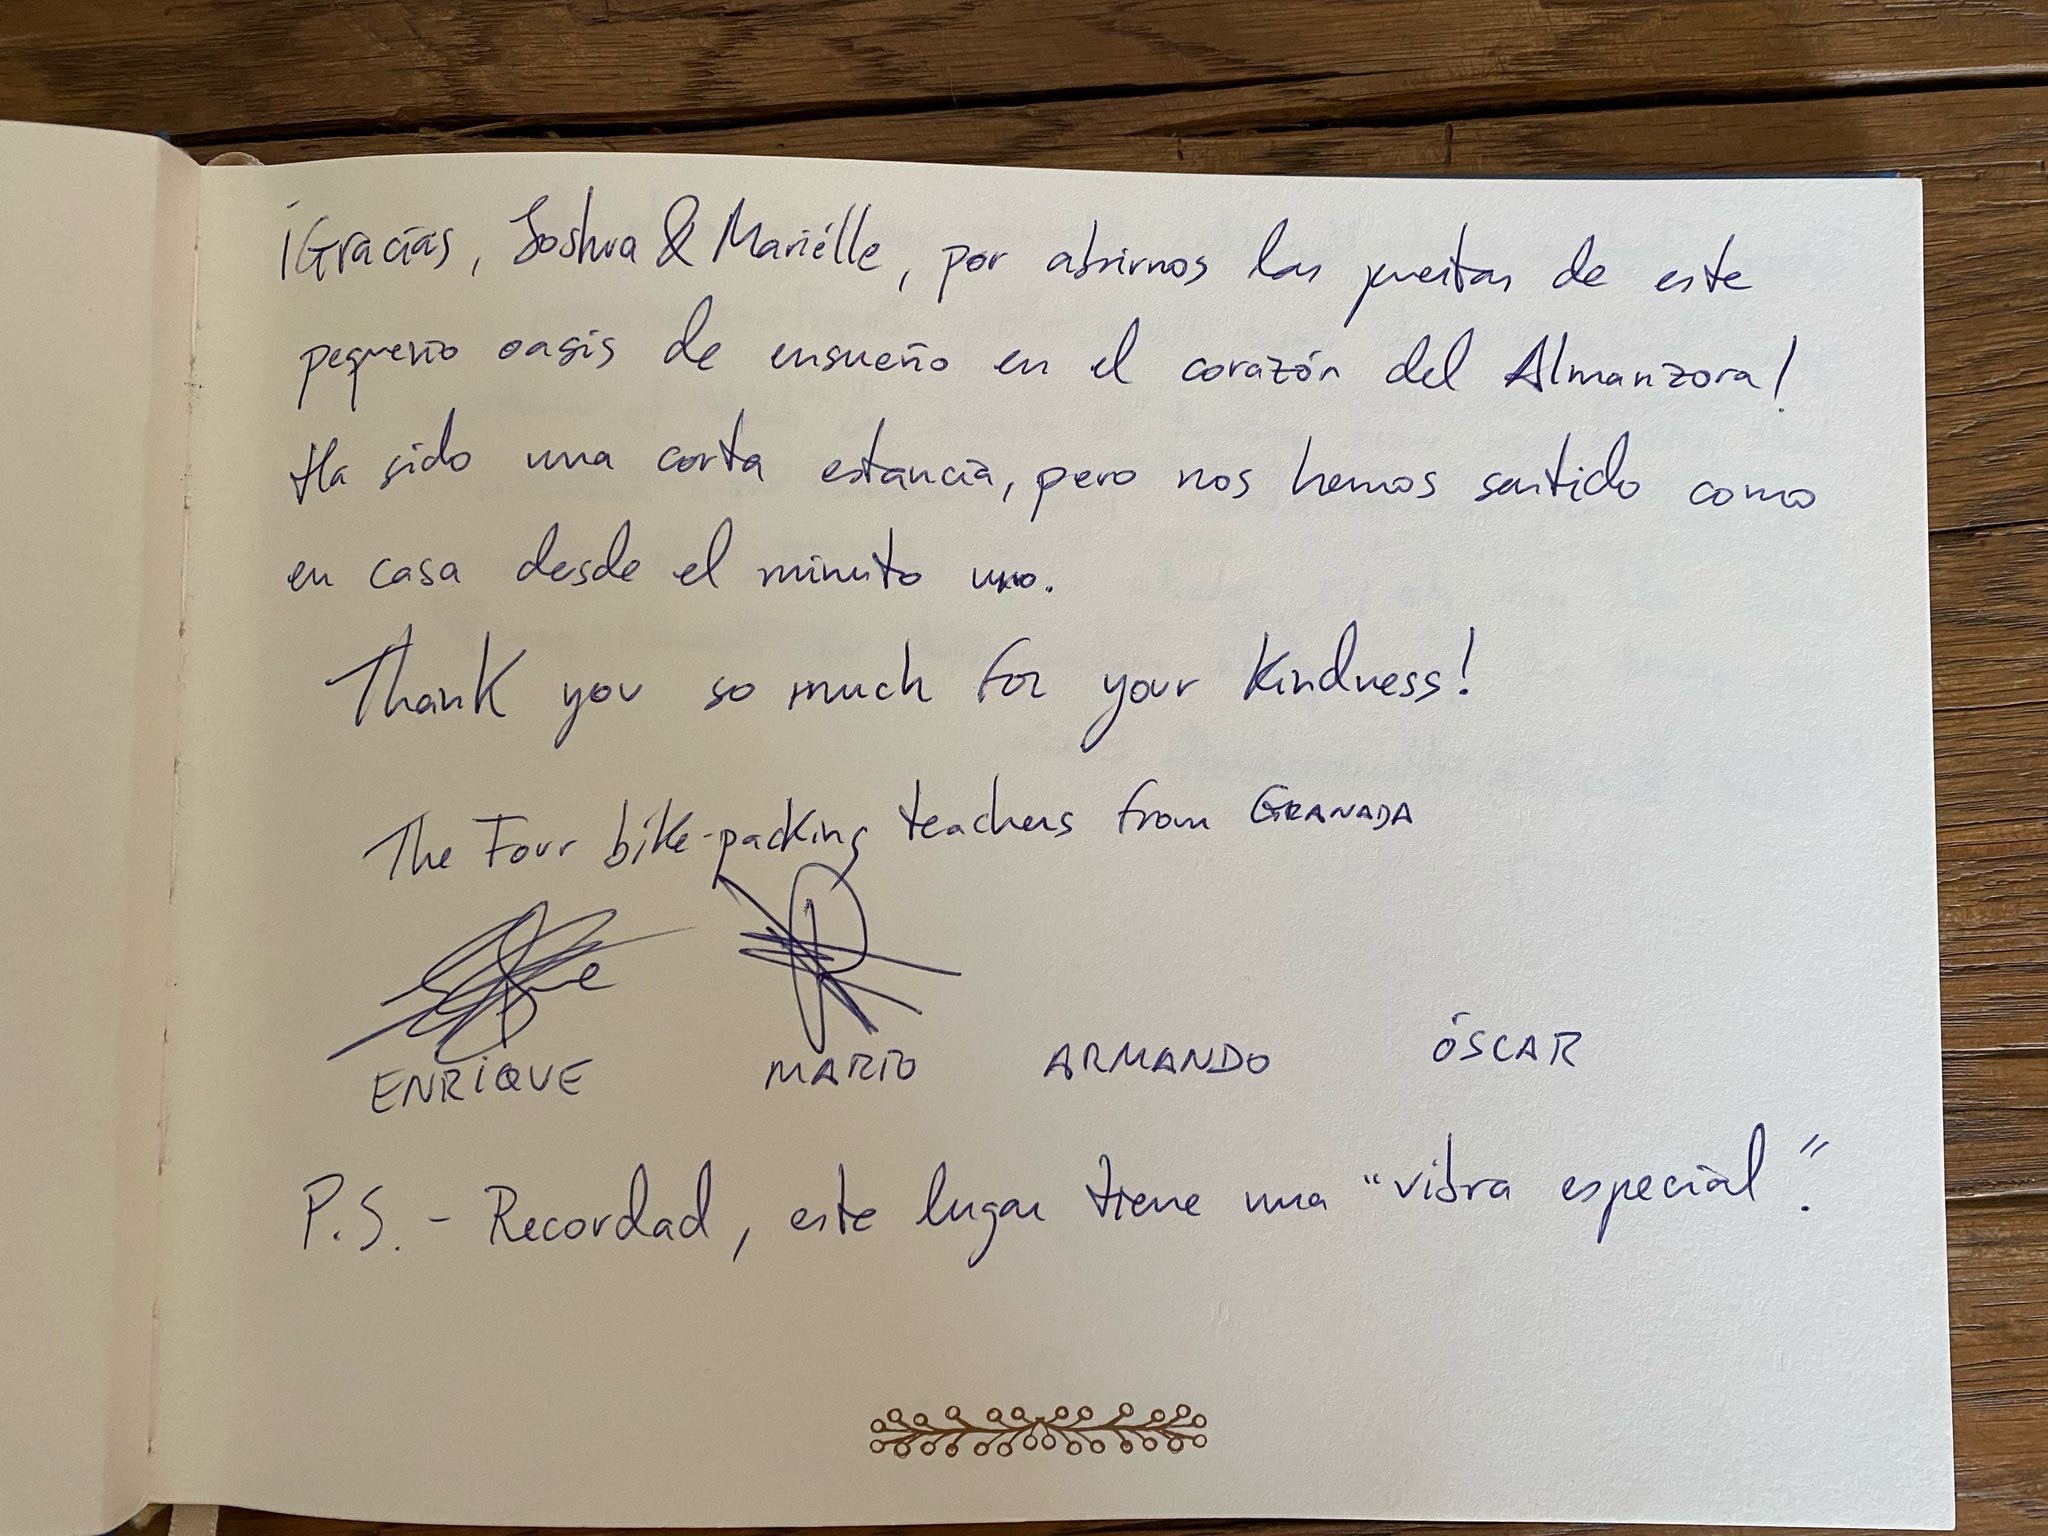 ¡Gracias, Joshua & Mariélle, por abrirnos las puertas de este
pequeño oasis de ensueño en el corazón del Almanzora!
Ha sido una corta estancia, pero nos hemos sentido como
en casa desde el minuto uno.
Thank you so much for your kindness!
The Four bike-packing teachers from GRANADA
ENRIQUE MARIO ARMANDO ÓSCAR
P.S. - Recordad, este lugar tiene una "vibra especial".